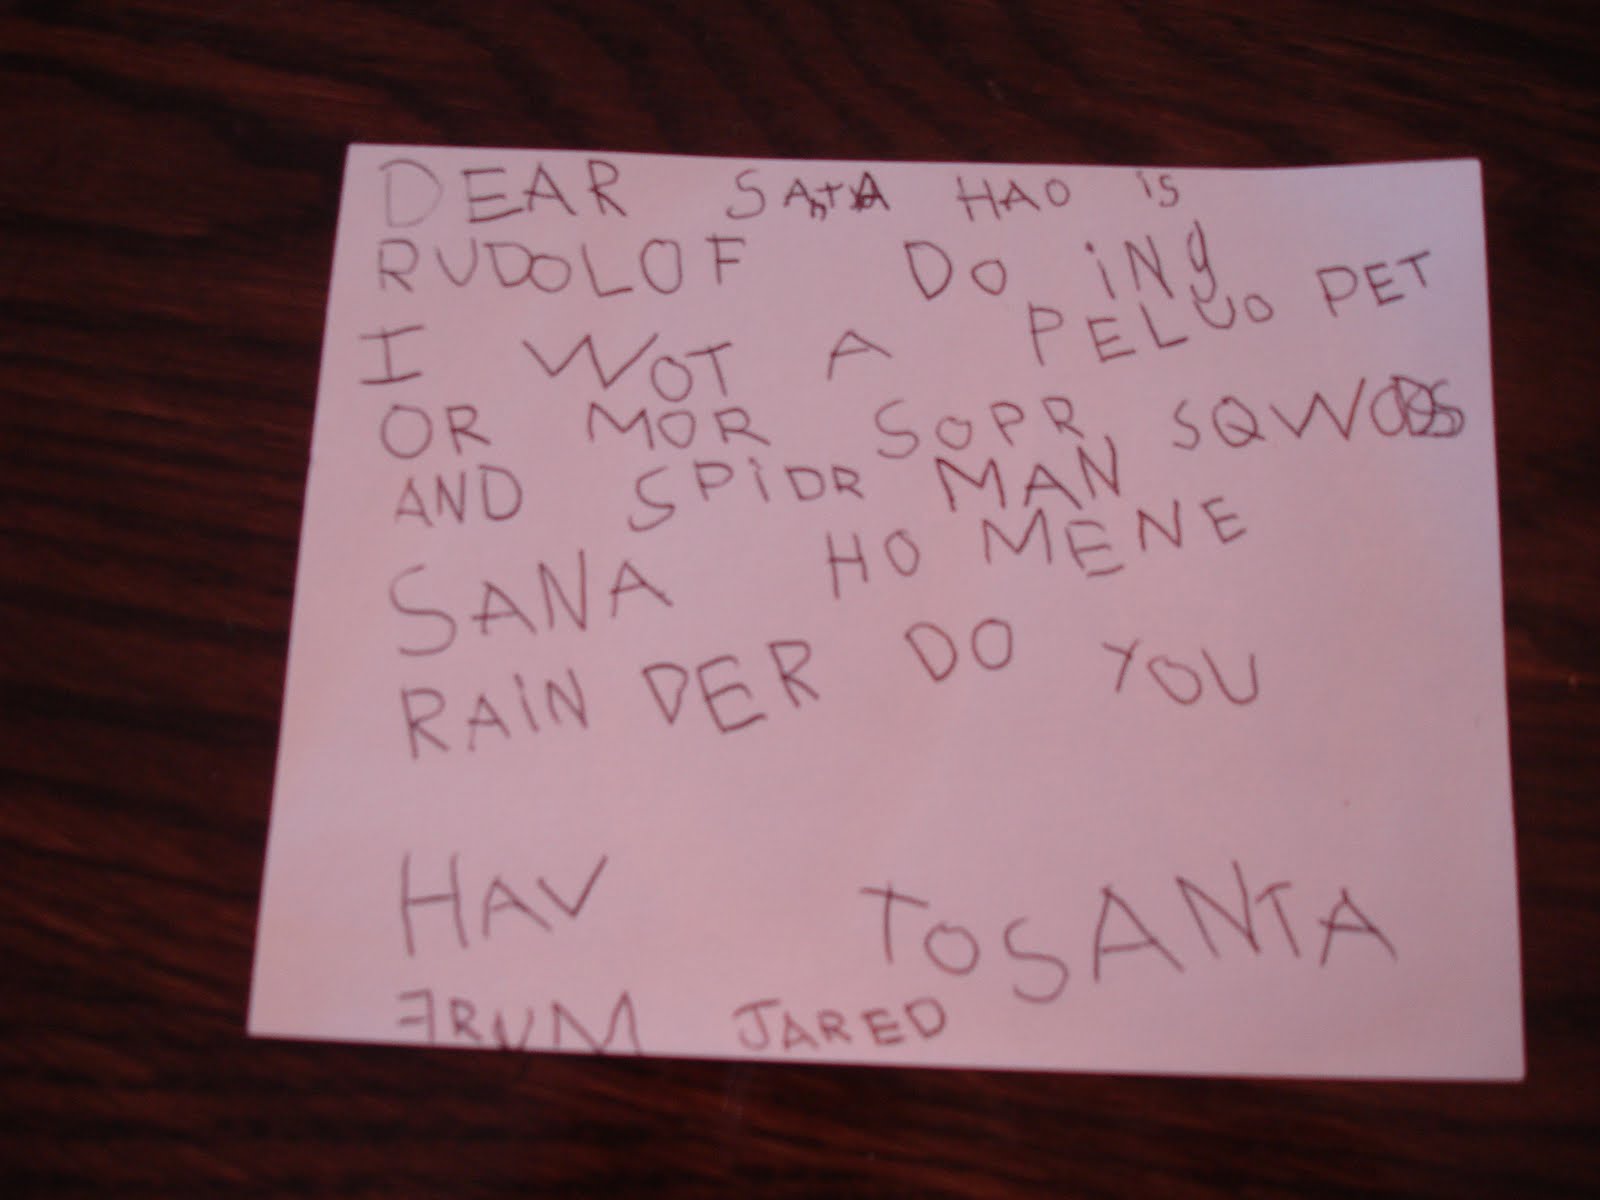 DEAR SANTA HAO iS
RUDOLOF DO iNg
I WOT A PELUO PET
OR MOR SOPR SQWODS
AND SPiDR MAN
SANA HO MENE
RAiN DER DO YOU
HAV TOSANTA
FRUM JARED